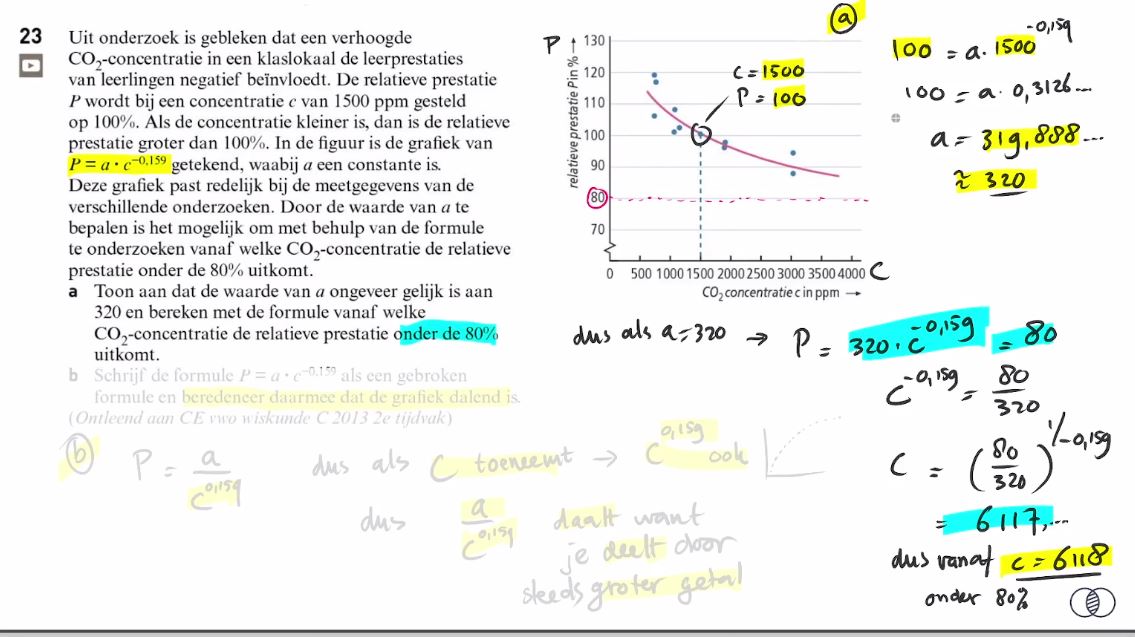 23 Uit onderzoek is gebleken dat een verhoogde
CO₂-concentratie in een klaslokaal de leerprestaties
van leerlingen negatief beïnvloedt. De relatieve prestatie
P wordt bij een concentratie c van 1500 ppm gesteld
op 100%. Als de concentratie kleiner is, dan is de relatieve
prestatie groter dan 100%. In de figuur is de grafiek van
P = a · c^−0,159 getekend, waabij a een constante is.
Deze grafiek past redelijk bij de meetgegevens van de
verschillende onderzoeken. Door de waarde van a te
bepalen is het mogelijk om met behulp van de formule
te onderzoeken vanaf welke CO₂-concentratie de relatieve
prestatie onder de 80% uitkomt.
a Toon aan dat de waarde van a ongeveer gelijk is aan
320 en bereken met de formule vanaf welke
CO₂-concentratie de relatieve prestatie onder de 80%
uitkomt.
b Schrijf de formule P = a · c^−0,159 als een gebroken
formule en beredeneer daarmee dat de grafiek dalend is.
(Ontleend aan CE vwo wiskunde C 2013 2e tijdvak)
P
relatieve prestatie P in %
130
120
110
100
90
80
70
0 500 1000 1500 2000 2500 3000 3500 4000 C
CO₂ concentratie c in ppm
C = 1500
P = 100
a
100 = a · 1500^−0,159
100 = a · 0,3126...
a = 319,888...
≈ 320
dus als a = 320 → P = 320 · c^−0,159 = 80
c^−0,159 = 80/320
C = (80/320)^1/−0,159
= 6117,...
dus vanaf c = 6118
onder 80%
b P = a/c^0,159 dus als C toeneemt → C^0,159 ook
dus a/c^0,159 daalt want
je deelt door
steeds groter getal